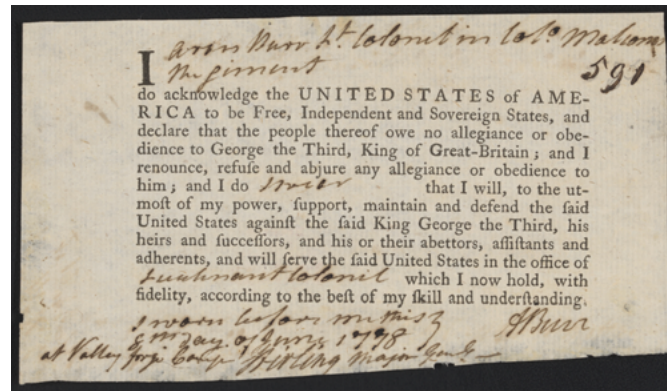 I Aron Burr Lt. Colonel in Colo. Malcoms
Regiment
591
do acknowledge the UNITED STATES of AME-
RICA to be Free, Independent and Sovereign States, and
declare that the people thereof owe no allegiance or obe-
dience to George the Third, King of Great-Britain; and I
renounce, refuſe and abjure any allegiance or obedience to
him; and I do swear that I will, to the ut-
moſt of my power, ſupport, maintain and defend the ſaid
United States againſt the ſaid King George the Third, his
heirs and ſucceſſors, and his or their abettors, aſſiſtants and
adherents, and will ſerve the ſaid United States in the office of
Lieutenant Colonel which I now hold, with
fidelity, according to the beſt of my ſkill and underſtanding.
Sworn before me this
day of June 1778 ABurr
at Valley forge Camp Stirling Major Genl